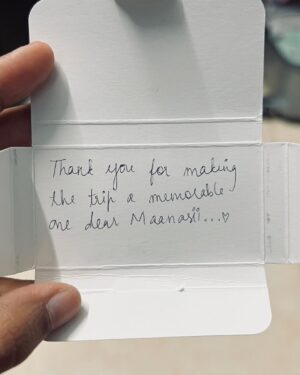 Thank you for making
the trip a memorable
one dear Maanasii...♡